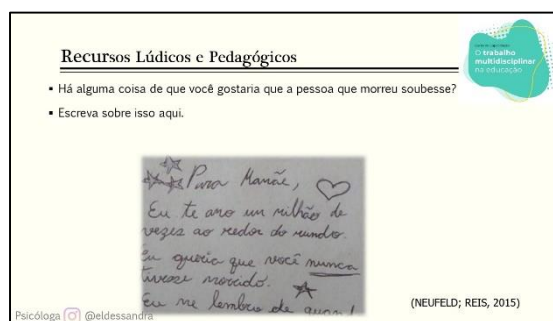 Recursos Lúdicos e Pedagógicos
O trabalho
multidisciplinar
na educação
▪ Há alguma coisa de que você gostaria que a pessoa que morreu soubesse?
▪ Escreva sobre isso aqui.
Para Mamãe,
Eu te amo um milhão de
vezes ao redor do mundo.
Eu queria que você nunca
tivesse morrido.
Eu me lembro de quan
(NEUFELD; REIS, 2015)
Psicóloga @eldessandra